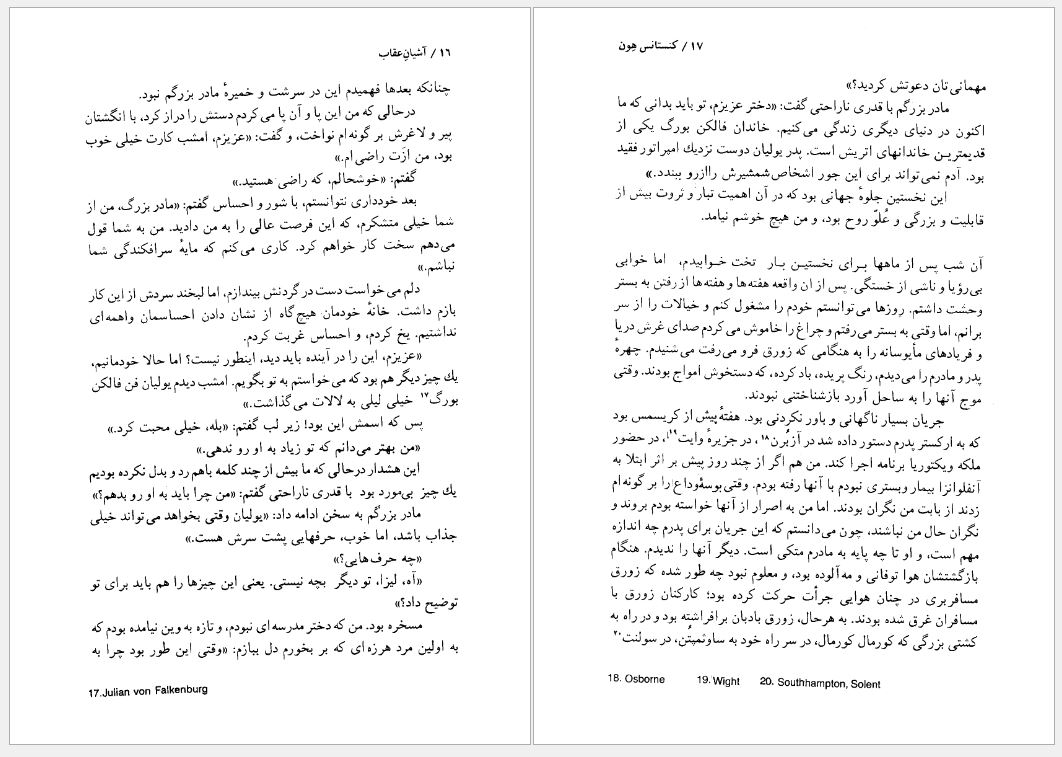 ۱۶ / آشیانِ عقاب
چنانکه بعدها فهمیدم این در سرشت و خمیرهٔ مادر بزرگم نبود.
درحالی که من این پا و آن پا می‌کردم دستش را دراز کرد، با انگشتان
پیر و لاغرش بر گونه‌ام نواخت، و گفت: «عزیزم، امشب کارت خیلی خوب
بود، من ازَت راضی‌ام.»
گفتم: «خوشحالم، که راضی هستید.»
بعد خودداری نتوانستم، با شور و احساس گفتم: «مادر بزرگ، من از
شما خیلی متشکرم، که این فرصت عالی را به من دادید. من به شما قول
می‌دهم سخت کار خواهم کرد. کاری می‌کنم که مایهٔ سرافکندگی شما
نباشم.»
دلم می‌خواست دست در گردنش بیندازم، اما لبخند سردش از این کار
بازم داشت. خانهٔ خودمان هیچ‌گاه از نشان دادن احساسمان واهمه‌ای
نداشتیم. یخ کردم، و احساس غربت کردم.
«عزیزم، این را در آینده باید دید، اینطور نیست؟ اما حالا خودمانیم،
یك چیز دیگر هم بود که می‌خواستم به تو بگویم. امشب دیدم یولیان فن فالکن
بورگ۱۷ خیلی لیلی به لالات می‌گذاشت.»
پس که اسمش این بود! زیر لب گفتم: «بله، خیلی محبت کرد.»
«من بهتر می‌دانم که تو زیاد به او رو ندهی.»
این هشدار درحالی که ما بیش از چند کلمه باهم رد و بدل نکرده بودیم
یك چیز بی‌مورد بود با قدری ناراحتی گفتم: «من چرا باید به او رو بدهم؟»
مادر بزرگم به سخن ادامه داد: «یولیان وقتی بخواهد می‌تواند خیلی
جذاب باشد، اما خوب، حرفهایی پشت سرش هست.»
«چه حرف‌هایی؟»
«آه، لیزا، تو دیگر بچه نیستی. یعنی این چیزها را هم باید برای تو
توضیح داد؟»
مسخره بود. من که دختر مدرسه‌ای نبودم، و تازه به وین نیامده بودم که
به اولین مرد هرزه‌ای که بر بخورم دل ببازم: «وقتی این طور بود چرا به
17.Julian von Falkenburg
۱۷ / کنستانس هِون
مهمانی‌تان دعوتش کردید؟»
مادر بزرگم با قدری ناراحتی گفت: «دختر عزیزم، تو باید بدانی که ما
اکنون در دنیای دیگری زندگی می‌کنیم. خاندان فالکن بورگ یکی از
قدیمترین خاندانهای اتریش است. پدر یولیان دوست نزدیك امپراتور فقید
بود. آدم نمی‌تواند برای این جور اشخاص شمشیرش را ازرو ببندد.»
این نخستین جلوهٔ جهانی بود که در آن اهمیت تبار و ثروت بیش از
قابلیت و بزرگی و عُلوّ روح بود، و من هیچ خوشم نیامد.
آن شب پس از ماهها برای نخستین بار تخت خوابیدم، اما خوابی
بی‌رؤیا و ناشی از خستگی. پس از ان واقعه هفته‌ها و هفته‌ها از رفتن به بستر
وحشت داشتم. روزها می‌توانستم خودم را مشغول کنم و خیالات را از سر
برانم، اما وقتی به بستر می‌رفتم و چراغ را خاموش می‌کردم صدای غرش دریا
و فریادهای مأیوسانه را به هنگامی که زورق فرو می‌رفت می‌شنیدم. چهرهٔ
پدر و مادرم را می‌دیدم، رنگ پریده، باد کرده، که دستخوش امواج بودند. وقتی
موج آنها را به ساحل آورد بازشناختنی نبودند.
جریان بسیار ناگهانی و باور نکردنی بود. هفتهٔ پیش از کریسمس بود
که به ارکستر پدرم دستور داده شد در آزبُرن۱۸، در جزیرهٔ وایت۱۹، در حضور
ملکه ویکتوریا برنامه اجرا کند. من هم اگر از چند روز پیش بر اثر ابتلا به
آنفلوانزا بیمار وبستری نبودم با آنها رفته بودم. وقتی بوسهٔ وداع را بر گونه‌ام
زدند از بابت من نگران بودند. اما من به اصرار از آنها خواسته بودم بروند و
نگران حال من نباشند، چون می‌دانستم که این جریان برای پدرم چه اندازه
مهم است، و او تا چه پایه به مادرم متکی است. دیگر آنها را ندیدم. هنگام
بازگشتشان هوا توفانی و مه‌آلوده بود، و معلوم نبود چه طور شده که زورق
مسافربری در چنان هوایی جرأت حرکت کرده بود؛ کارکنان زورق با
مسافران غرق شده بودند. به هرحال، زورق بادبان برافراشته بود و در راه به
کشتی بزرگی که کورمال کورمال، در سر راه خود به ساوثمپتُن، در سولنت۲۰
18. Osborne 19. Wight 20. Southhampton, Solent